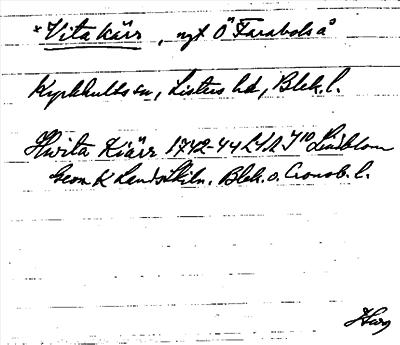 *Vita kärr, nyt Ö Farabolså
Kyrkhults sn, Listers hd, Blek. l.
Hwita Kiärr 1742-44 LSA J10 Lindblom
Geom K Landtskiln. Blek. o. Cronob. l.